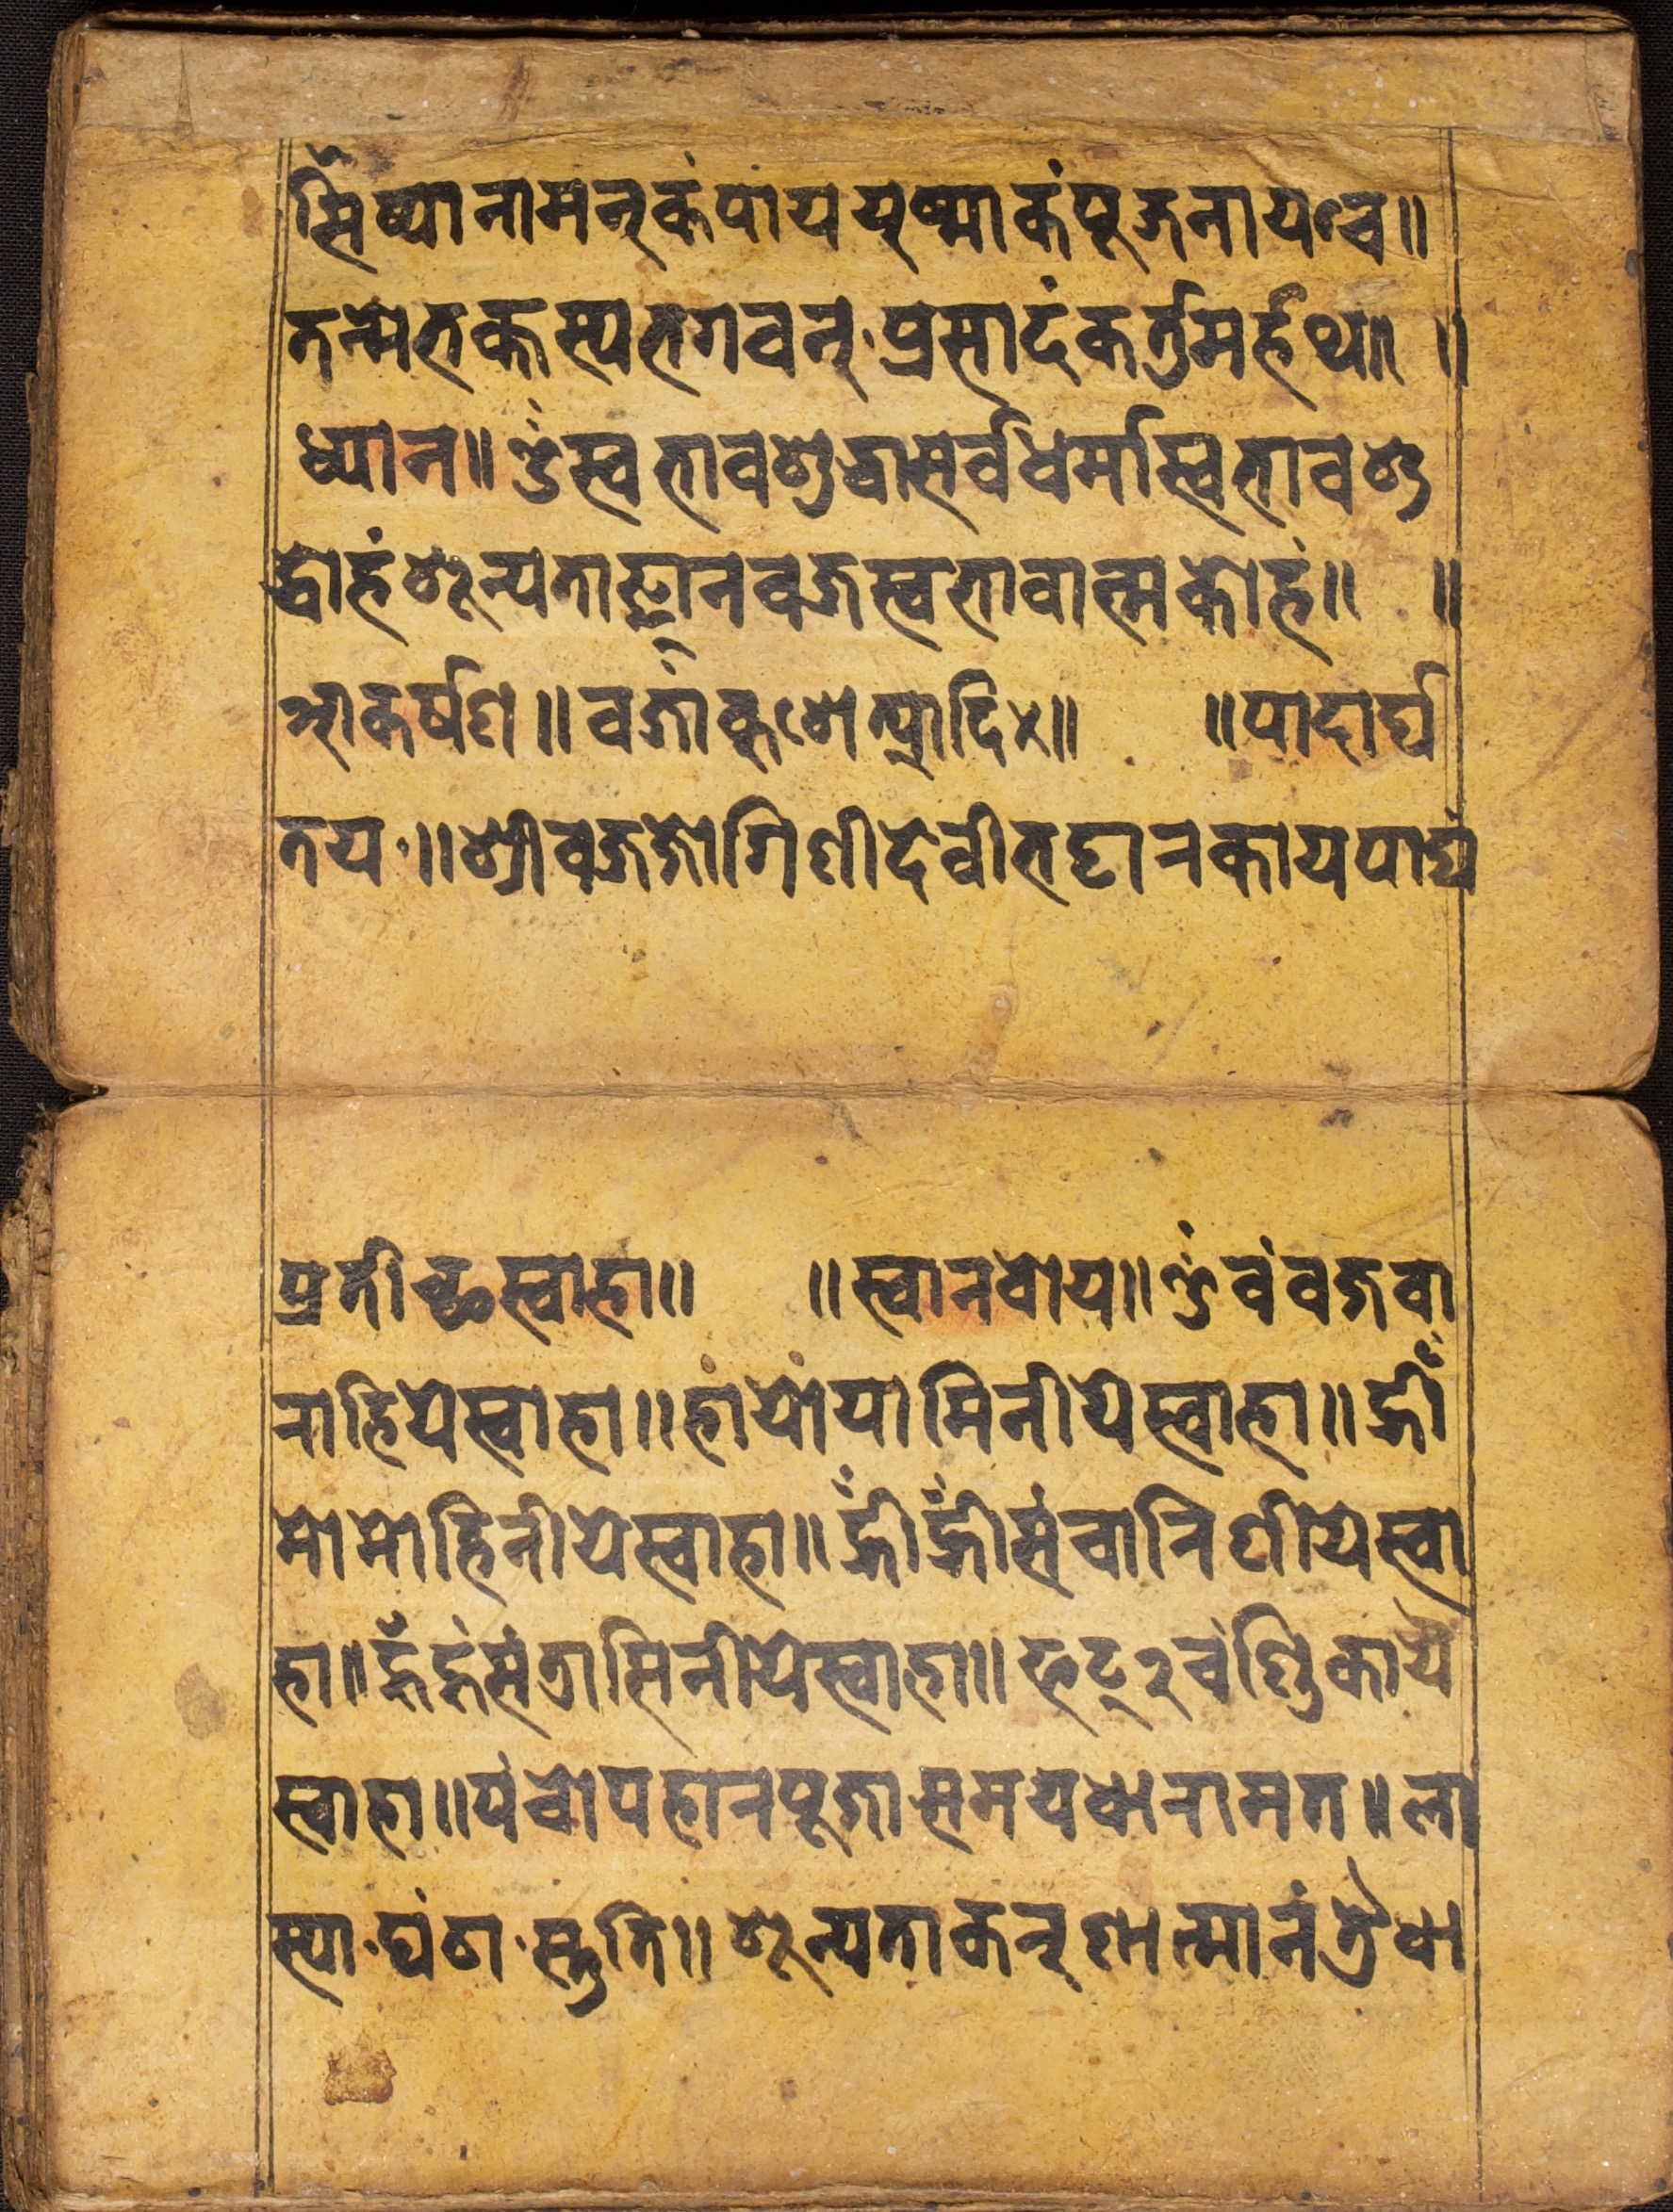 सिँष्यानामनुकंपाय युष्माकं पूजनायञ्च॥
तन्मे भक्तस्य भगवन् · प्रसादं कर्तुमर्हथ॥ ॥
ध्यान॥ ॐ स्वभावशुद्धा सर्वधर्मा स्वभावशु
द्धोहं शून्यताज्ञानवज्रस्वभावात्मकोहं॥ ॥
आकर्षण॥ वज्रांकुशेत्यादि ४॥ ॥ पादार्घ
तय·॥ श्रीवज्रजोगिणीदेवीभट्टानकाय पाद्यं
प्रतीच्छ स्वाहा॥ ॥ स्वानबोय॥ ॐ वं वज्रवा
नाहिये स्वाहा॥ हां यों यामिनीये स्वाहा॥ ह्रीँ
मों मोहिनीये स्वाहा॥ ह्रीं ह्रीं संचानिणीये स्वा
हा॥ हूँ हूं संत्रासिनीये स्वाहा॥ फट् २ चंण्डिकाये
स्वाहा॥ पंचोपहानपूजा समयधानामत॥ ला
स्या · घंठा · स्तुति॥ शून्यताकनुणात्मानं त्रैधा